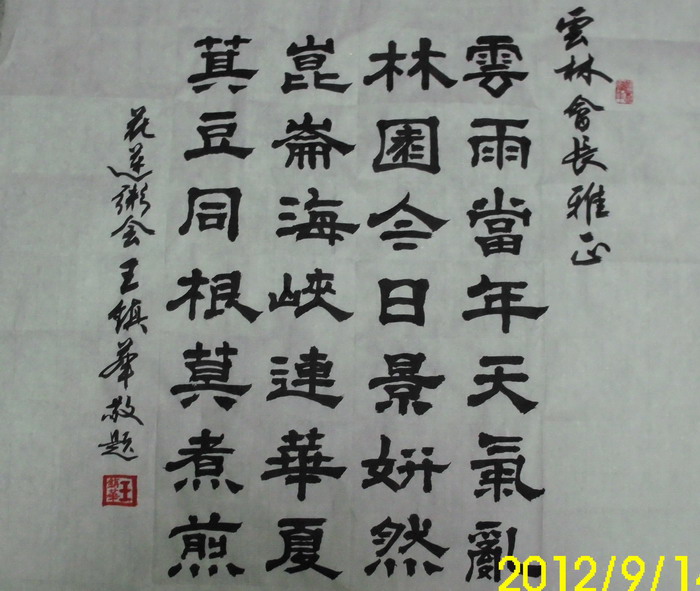 雲林會長雅正
雲雨當年天氣亂
林園今日景妍然
崑崙海峽連華夏
萁豆同根莫煮煎
花蓮粥会王鎮華敬題
2012/9/14